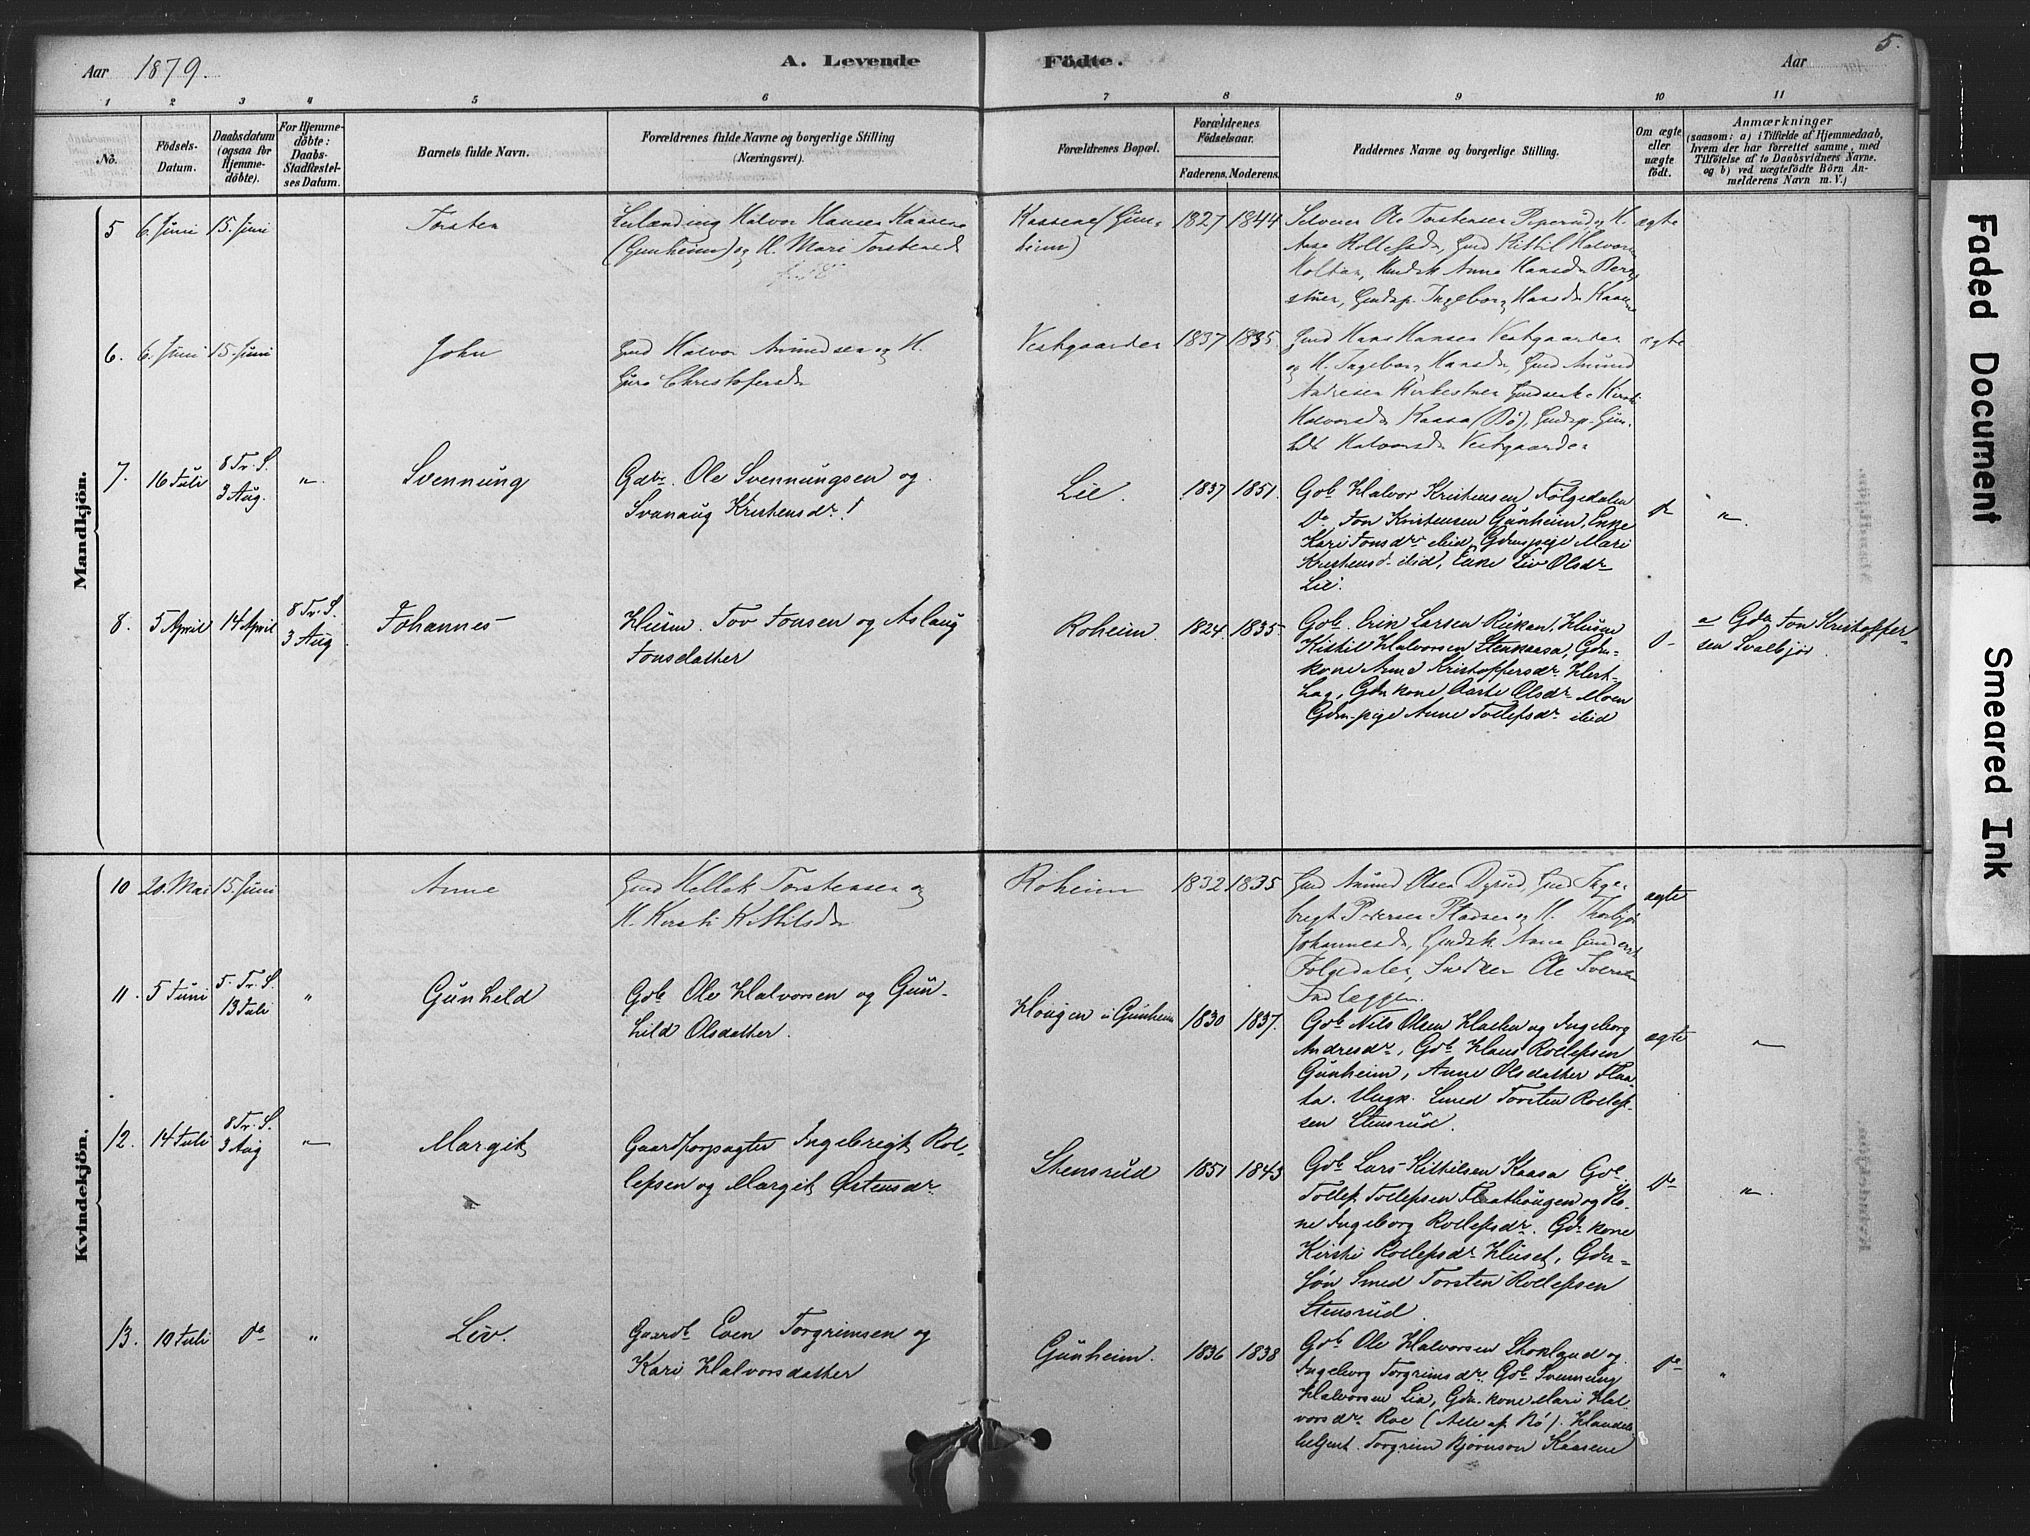 Aar 1879.
A. Levende Födte.
Aar
5.
1 2 3 4 5 6 7 8 9 10 11
No.
Födsels-Datum.
Daabsdatum (ogsaa for Hjemme-döbte).
For Hjemme-döbte: Daabs-Stadfæstel-ses Datum.
Barnets fulde Navn.
Forældrenes fulde Navne og borgerlige Stilling (Næringsvei).
Forældrenes Bopæl.
Forældrenes Födselsaar.
Faderens. Moderens.
Faddernes Navne og borgerlige Stilling.
Om ægte eller uægte födt.
Anmærkninger
(saasom: a) i Tilfælde af Hjemmedaab,
hvem der har forrettet samme, med
Tilföielse af to Daabsvidners Navne.
og b) ved uægtefödte Börn An-
melderens Navn m. V.)
Mandkjön.
5 6. Juni 15. Juni Torsten
Halvor Hansen Kaasene
(Gunheim) og H. Mari Torstensd
Kaasene (Gun-
heim)
1827 1844
Selveier Ole Torstensen og H.
Aase Rollefsd, Gmd Kittil Halvors
Holtan, Anne Hansd Berg
stuen, Ingeborg Hansd Kaasene
ægte
6. 6. Juni 15. Juni John
Gmd Halvor Amundsen og H.
Guro Christofersd
Vestgaarden 1837 1835.
Gmd Hans Hansen Vestgaarden
og H. Ingeborg Hansd, Gmd Amund
Andresen Kirkestuen
Halvorsd Kaasa (Bø), Gun-
hild Halvorsd Vestgaarden
ægte
7. 16 Juli 8 Tr. S. 3 Aug. " Svennung
Gdbr. Ole Svennungsen og
Svanaug Kristensdr. !
Lie. 1837 1851.
Gdb Halvor Kristensen Følgedalen
Do Jon Kristensen Gunheim, Enke
Kari Jonsdr ibid, Gdmspige Mari
Kristensd. ibid, Enke Liv Olsdr
Lie.
Do "
8. 5 April 14 April 8 Tr. S. 3 Aug Johannes
Husm. Tov Jonsen og Aslaug
Jonsdatter
Roheim. 1824 1835.
Gdb. Erik Larsen Rukan, Husm
Kittil Halvorsen Stenkaasa, Gdm-
kone Anne Kristoffersdr.
Gdm kone Aaste Olsdr Moen
Gdm-pige Anne Tollefsdr ibid
Do
a Gdm Jon Kristoffer-
sen Svalbjør.
Kvindekjön.
10 20. Mai 15. Juni Anne
Gmd Hellek Torstensen og
H. Kirsti Kittilsd
Roheim 1832 1835
Gmd Amund Olsen Dyrud, Gmd Inge-
bregt Petersen Pladsen og H. Thorbjør
Johannesd, Anne Gunders
Følgedalen, Ole Iversen
Indlæggen.
ægte
11. 5 Juni 5. Tr. S. 13 Juli " Gunhild
Gdb Ole Halvorsen og Gun-
hild Olsdatter.
Haugen i Gunheim 1830 1837.
Gdb Nils Olsen Haslen og Ingeborg
Andresdr, Gdb Hans Rollefsen
Gunheim, Anne Olsdatter Flaa-
ta. Ungk. Smed Torsten Rollef-
sen Stensrud.
ægte "
12. 14 Juli 8 Tr. S. 3 Aug " Margit
Gaardforpagter Ingebregt Rol-
lefsen og Margit Østensdr.
Stensrud 1851 1843
Gdb Lars Kittilsen Kaasa Gdb.
Tollef Tollefsen Flaathaugen og Ko-
ne Ingeborg Rollefsdr. Gdm kone
Kirsti Rollefsdr Huset, Gdm-
søn Smed Torsten Rollefsen
Stensrud.
Do "
13. 10 Juli Do " Liv.
Gaardb Even Torgrimsen og
Kari Halvorsdatter
Gunheim. 1836 1838
Gdb Ole Halvorsen Skoland og
Ingeborg Torgrimsdr. Gdb Svennung
Halvorsen Lia, Gdm.kone Mari Hal-
vorsdr Roe (Alle af Bø). Handels-
betjent Torgrim Bjørnson Kaasene
Do "
Faded Document
Smeared Ink